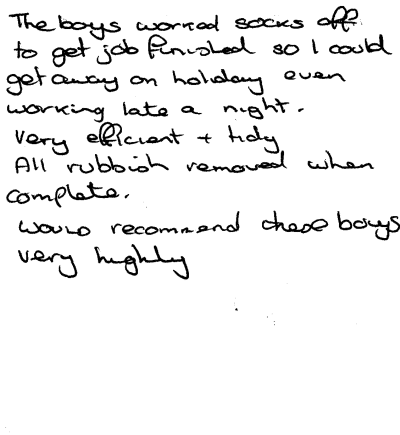 The boys worked socks off
to get job finished so I could
get away on holiday even
working late a night.
very efficient + tidy
All rubbish removed when
complete.
would recommend these boys
very highly